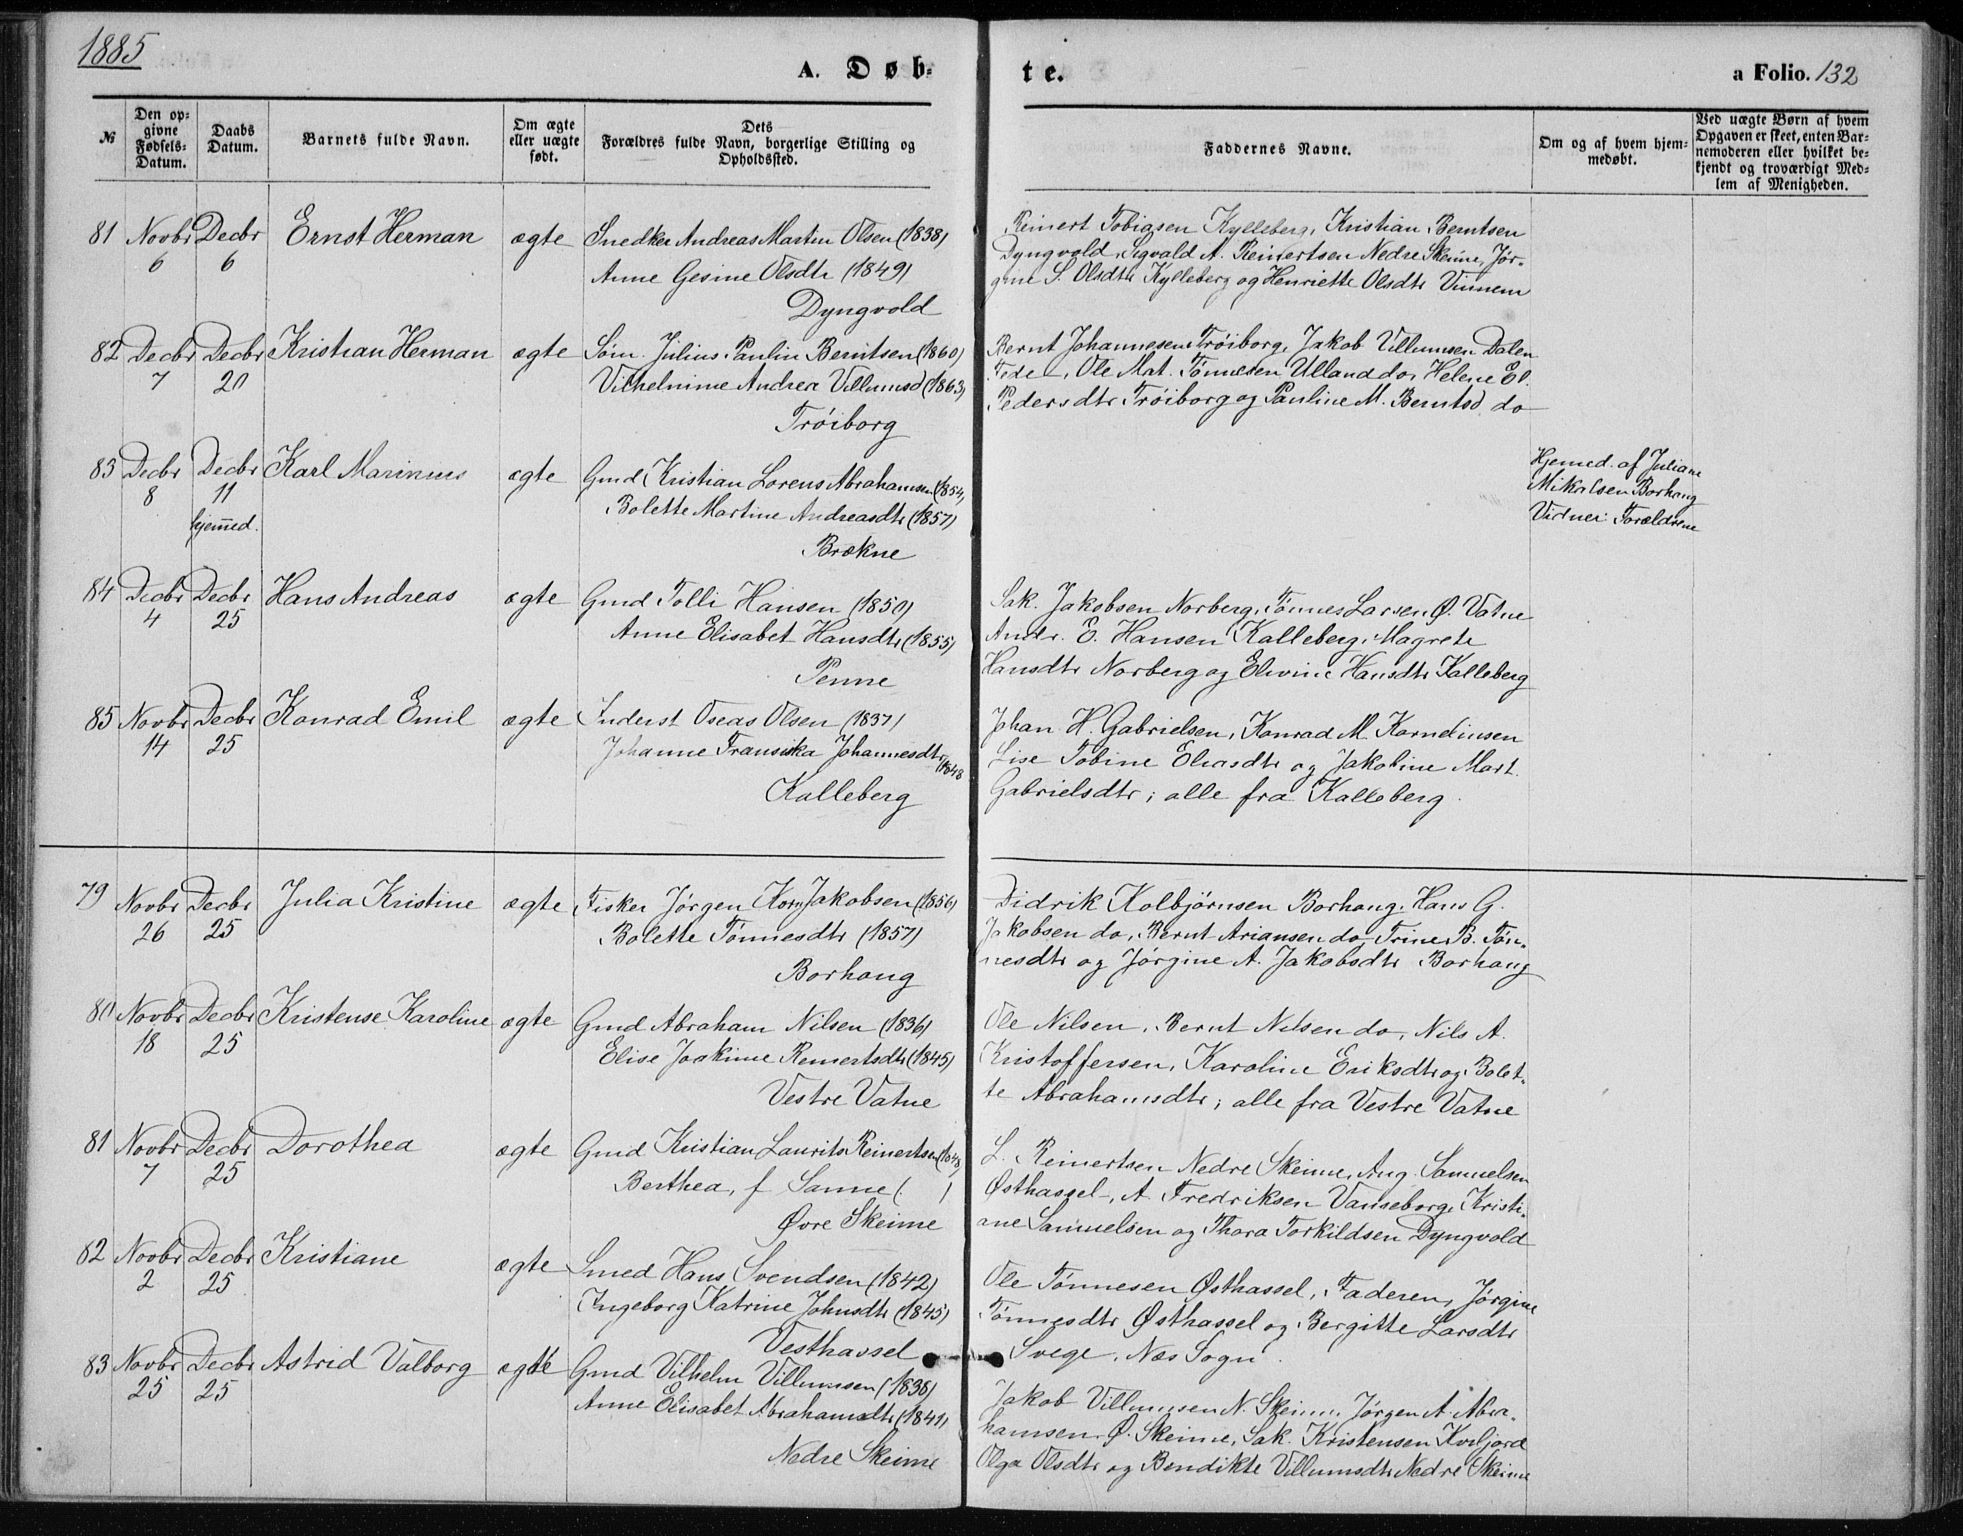 1885
A. Døb-
te.
a Folio. 132
№
Den op-
givne
Fødsels-
Datum.
Daabs
Datum.
Barnets fulde Navn.
Om ægte
eller uægte
født.
Dets
Forældres fulde Navn, borgerlige Stilling og
Opholdssted.
Faddernes Navne.
Om og af hvem hjem-
medøbt.
Ved uægte Børn af hvem
Opgaven er skeet, enten Bar-
nemoderen eller hvilket be-
kjendt og troværdigt Med-
lem af Menigheden.
81 Novbr Decbr Ernst Herman ægte Snedker Andreas Martin Olsen (1838)
6 6 Anne Gesine Olsdtr (1849)
Dyngvold
Reinert Tobiasen Kylleberg, Kristian Berntsen
Dyngvold, Sigvald A. Reinertsen Nedre Skeime, Jør-
gine S. Olsdtr Kylleberg og Henriette Olsdtr Vinnem
82 Decbr Decbr Kristian Herman ægte Søm. Julius Paulin Berntsen (1860)
7 20 Vilhelmine Andrea Villumsd (1863)
Trøiborg
Bernt Johannesen Trøiborg, Jakob Villumsen Dalen
Fede, Ole Mat. Tønnesen Ulland do, Helene El.
Pedersdtr Trøiborg og Pauline M. Berntsd do
83 Decbr Decbr Karl Marinius ægte Gmd Kristian Lorens Abrahamsen (1854)
8 11 Bolette Martine Andreasdtr (1857)
hjemmed. Brekne
Hjemed. af Juliane
Mikalsen Borhaug
Vidner: Forældrene
84 Decbr Decbr Hans Andreas ægte Gmd Tolli Hansen (1850)
4 25 Anne Elisabet Hansdtr (1855)
Penne
Sak. Jakobsen Norberg, Tønnes Larsen Ø. Vatne
Andr. E. Hansen Kalleberg, Magrete
Hansdtr Norberg og Elevine Hansdtr Kalleberg
85 Novbr Decbr Konrad Emil ægte Inderst Oseas Olsen (1837)
14 25 Johanne Fransiska Johannesdtr (1848
Kalleberg
Johan H. Gabrielsen, Konrad M. Korneliusen
Lise Tobine Eliasdtr og Jakobine Mart.
Gabrielsdtr; alle fra Kalleberg.
79 Novbr Decbr Julia Kristine ægte Fisker Jørgen Korn. Jakobsen (1856)
26 25 Bolette Tønnesdtr (1857)
Borhaug
Didrik Kolbjørnsen Borhaug, Hans G.
Jakobsen do, Bernt Ariansen do, Trine B. Tøn-
nesdtr og Jørgine A. Jakobsdtr Borhaug
80 Novbr Decbr Kristense Karoline ægte Gmd Abraham Nilsen (1836)
18 25 Elise Joakime Reinertsdtr (1845)
Vestre Vatne
Ole Nilsen, Bernt Nilsen do, Nils A.
Kristoffersen, Karoline Eriksdtr og Bolet-
te Abrahamsdtr; alle fra Vestre Vatne
81 Novbr Decbr Dorothea ægte Gmd Kristian Laurits Reinertsen (1848)
7 25 Berthea, f Sanne ( )
Øvre Skeime
L. Reinertsen Nedre Skeime, Aug. Samuelsen
Østhassel, A Fredriksen Vanseborg, Kristi-
ane Samuelsen og Thora Torkildsen Dyngvold
82 Novbr Decbr Kristiane ægte Smed Hans Svendsen (1842)
2 25 Ingeborg Katrine Johnsdtr (1845)
Vesthassel
Ole Tønnesen Østhassel, Faderen, Jørgine
Tønnesdtr Østhassel og Bergitte Larsdtr
Svege, Nes Sogn.
83 Novbr Decbr Astrid Valborg ægte Gmd Vilhelm Villumsen (1838)
25 25 Anne Elisabet Abrahamsdtr (1841)
Nedre Skeime
Jakob Villumsen N. Skeime, Jørgen A. Abra-
hamsen Ø. Skeime, Sak. Kristensen Kviljord
Olga Olsdtr og Bendikte Villumsdtr Nedre Skeime